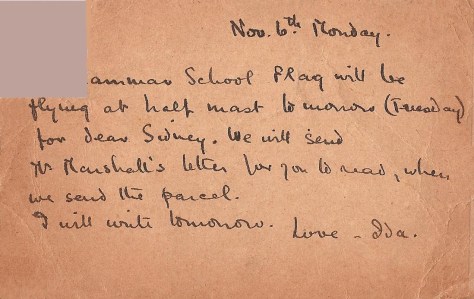 Nov. 6th Monday.
ammar School Flag will be
flying at half mast tomorrow (Tuesday)
for dear Sidney. We will send
Mr Marshall's letter for you to read, when
we send the parcel.
I will write tomorrow. Love - Ida.